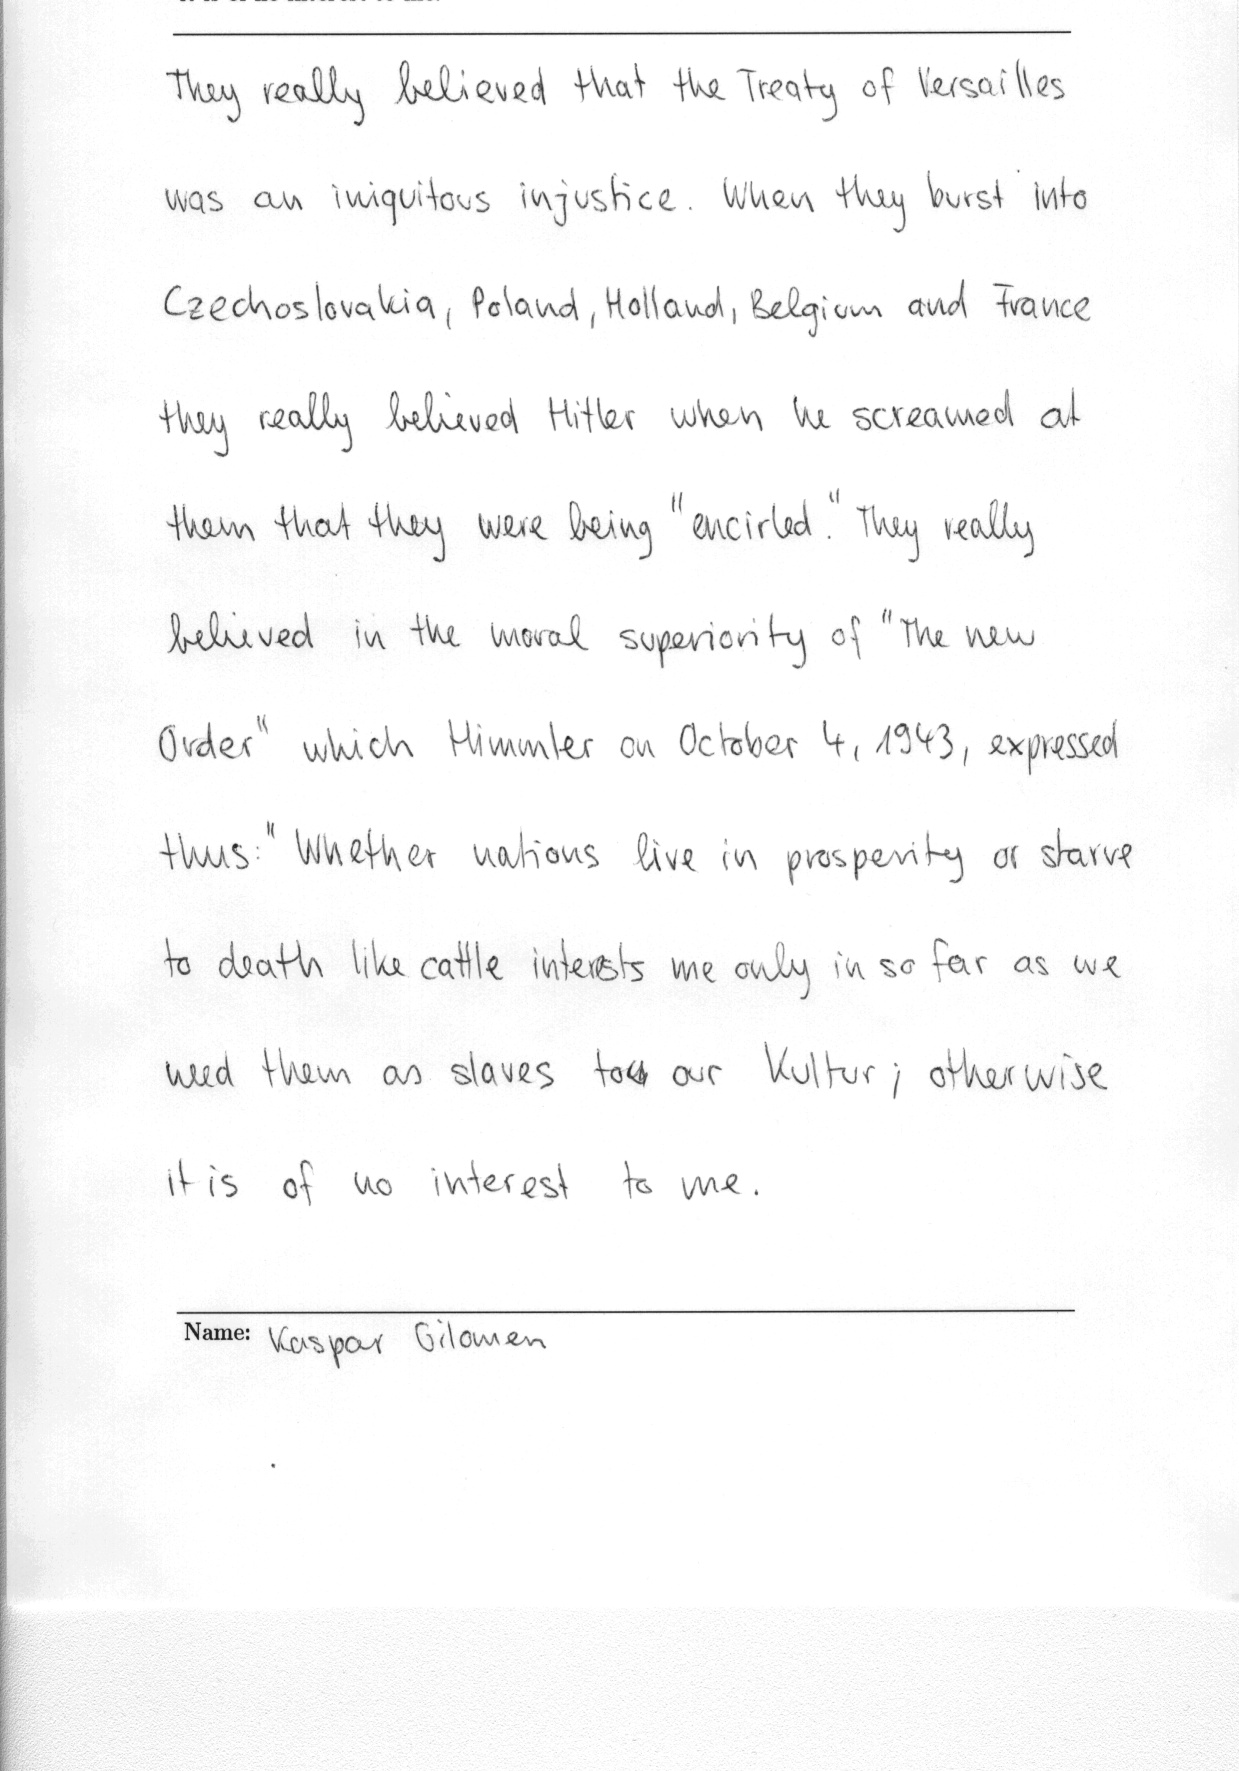 They really believed that the Treaty of Versailles
was an iniquitous injustice. When they burst into
Czechoslovakia, Poland, Holland, Belgium and France
they really believed Hitler when he screamed at
them that they were being "encirled." They really
believed in the moral superiority of "The new
Order" which Himmler on October 4, 1943, expressed
thus: "Whether nations live in prosperity or starve
to death like cattle interests me only in so far as we
need them as slaves to our Kultur; otherwise
it is of no interest to me.
Name: Kaspar Gilomen